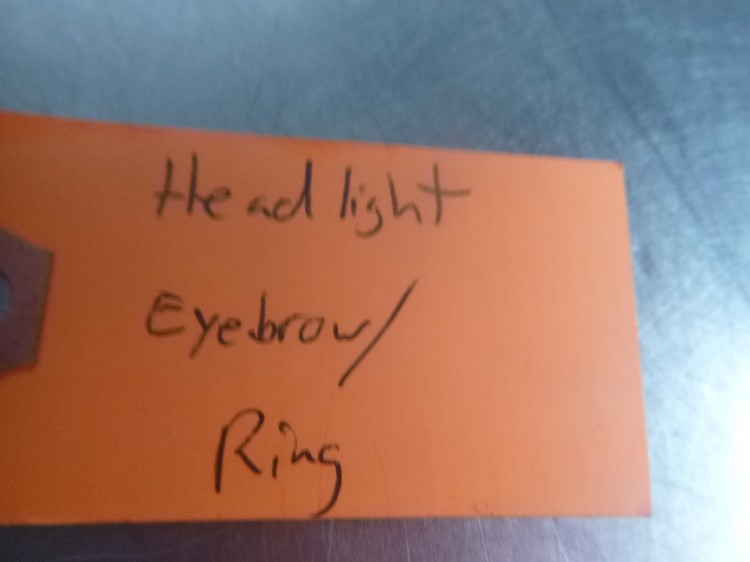 Headlight
Eyebrow/
Ring